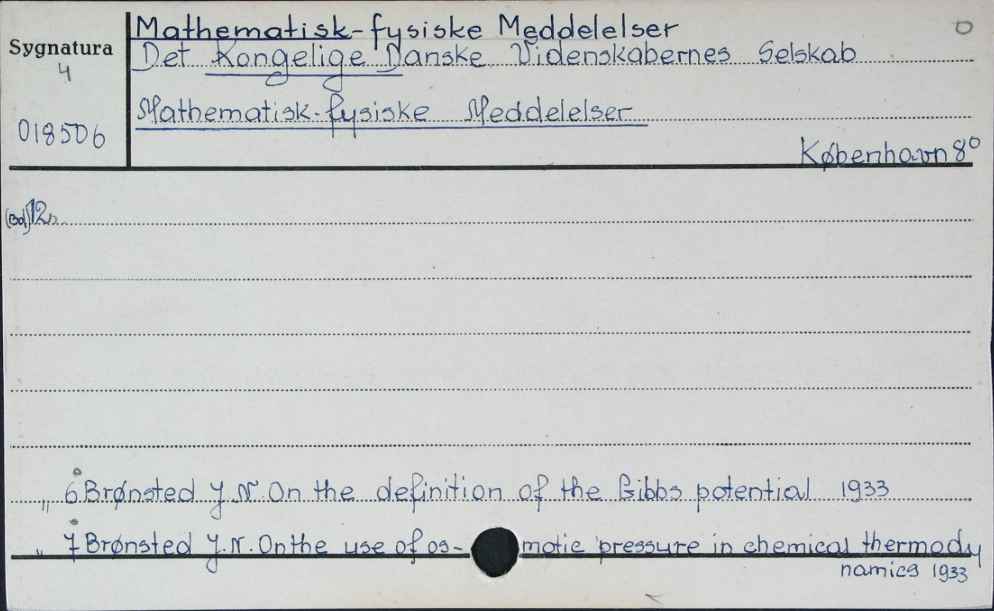 Mathematisk-fysiske Meddelelser
Sygnatura Det Kongelige Danske Videnskabernes Selskab
4
Mathematisk-fysiske Meddelelser
018506
København 8°
12
„ 6° Brønsted J. N. On the definition of the Gibbs potential 1933
„ 7° Brønsted J. N. On the use of os- motic pressure in chemical thermody
namics 1933